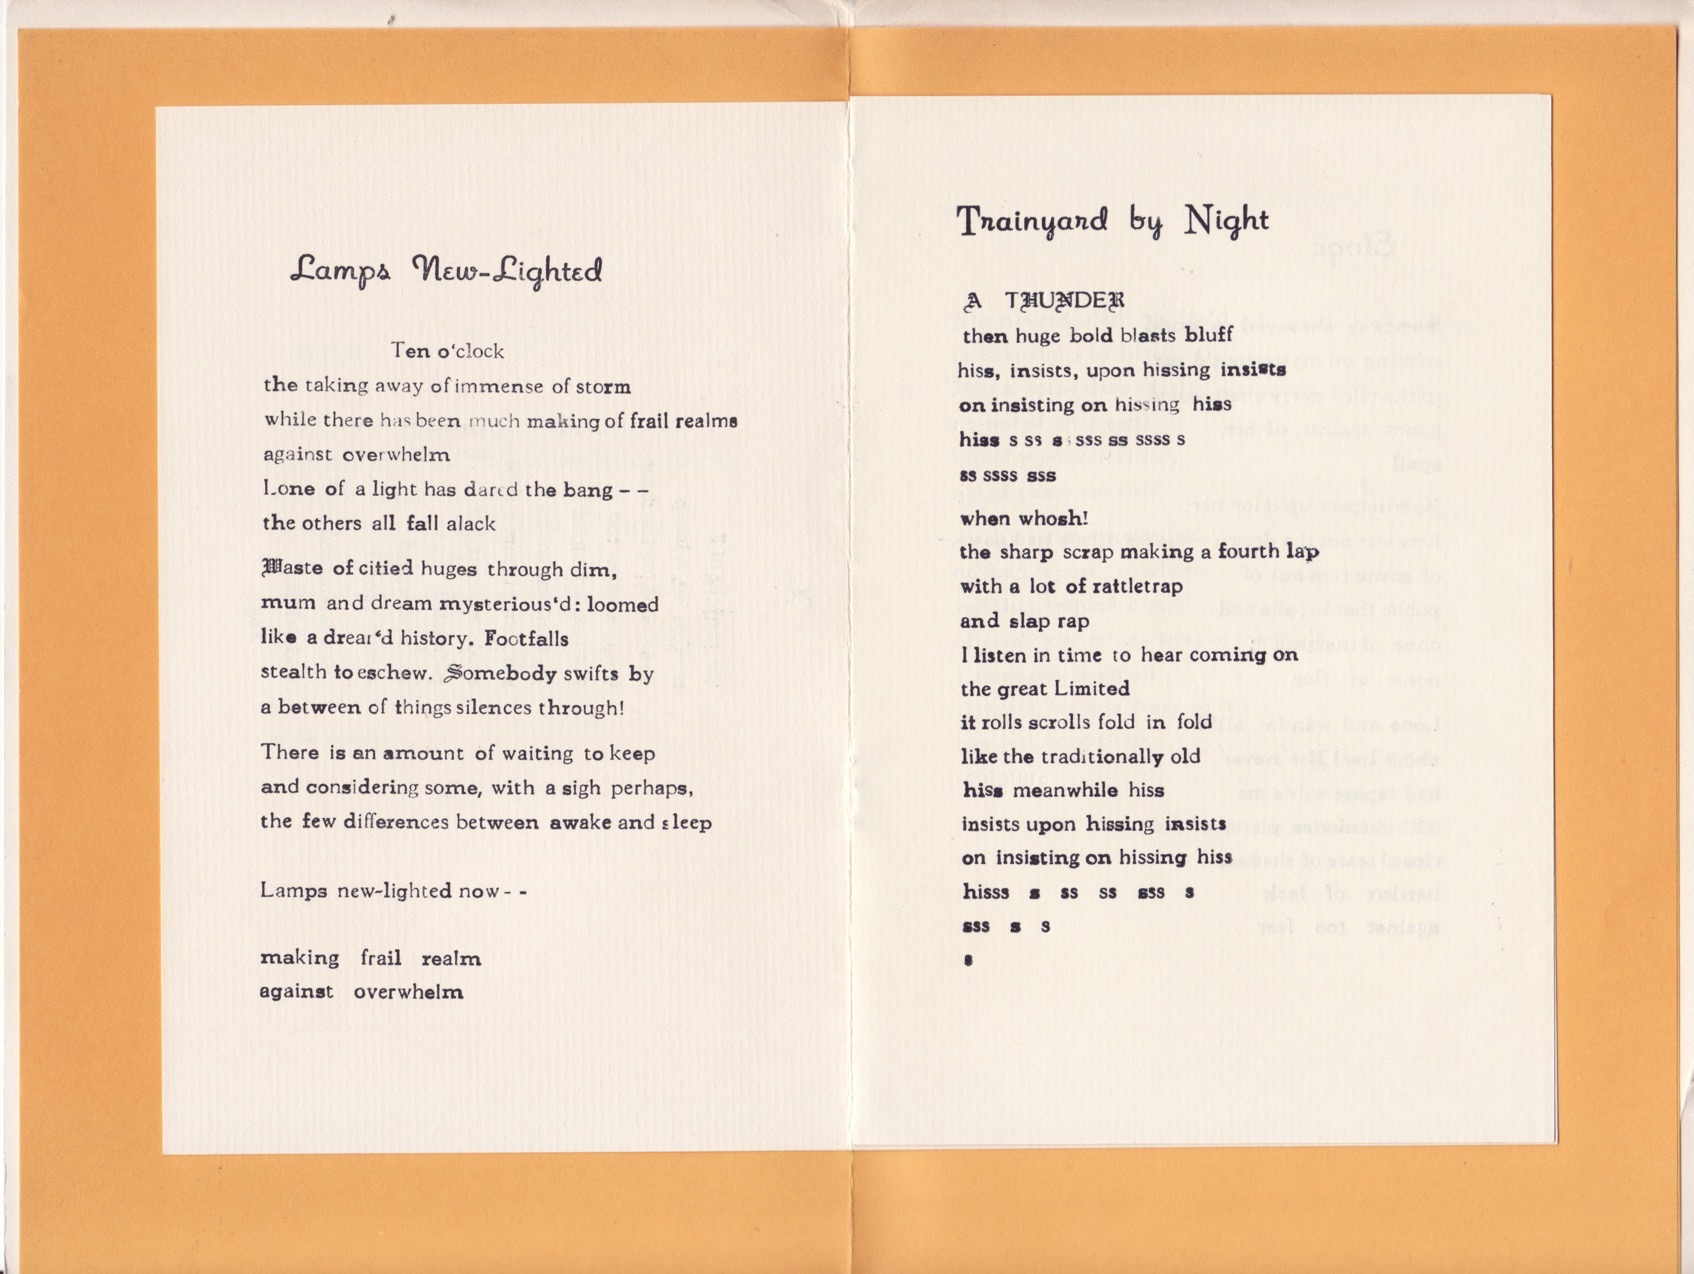 Lamps New-Lighted
Ten o‘clock
the taking away of immense of storm
while there has been much making of frail realms
against overwhelm
Lone of a light has dared the bang - -
the others all fall alack
Waste of citied huges through dim,
mum and dream mysterious‘d: loomed
like a drear‘d history. Footfalls
stealth to eschew. Somebody swifts by
a between of things silences through!
There is an amount of waiting to keep
and considering some, with a sigh perhaps,
the few differences between awake and sleep
Lamps new-lighted now - -
making frail realm
against overwhelm
Trainyard by Night
A THUNDER
then huge bold blasts bluff
hiss, insists, upon hissing insists
on insisting on hissing hiss
hiss s ss s s sss ss ssss s
ss ssss sss
when whosh!
the sharp scrap making a fourth lap
with a lot of rattletrap
and slap rap
I listen in time to hear coming on
the great Limited
it rolls scrolls fold in fold
like the traditionally old
hiss meanwhile hiss
insists upon hissing insists
on insisting on hissing hiss
hisss s ss ss sss s
sss s s
s